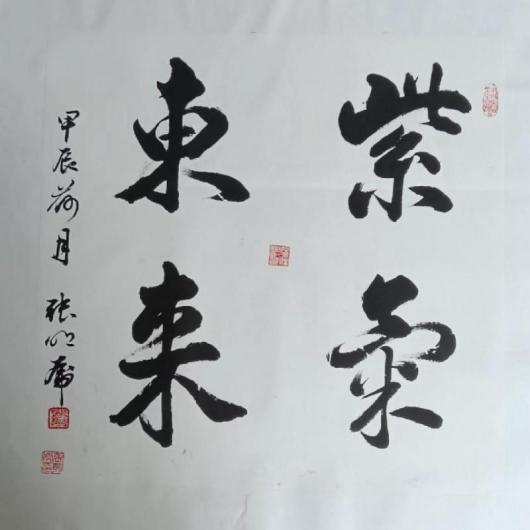 紫氣
東来
甲辰荷月 張明